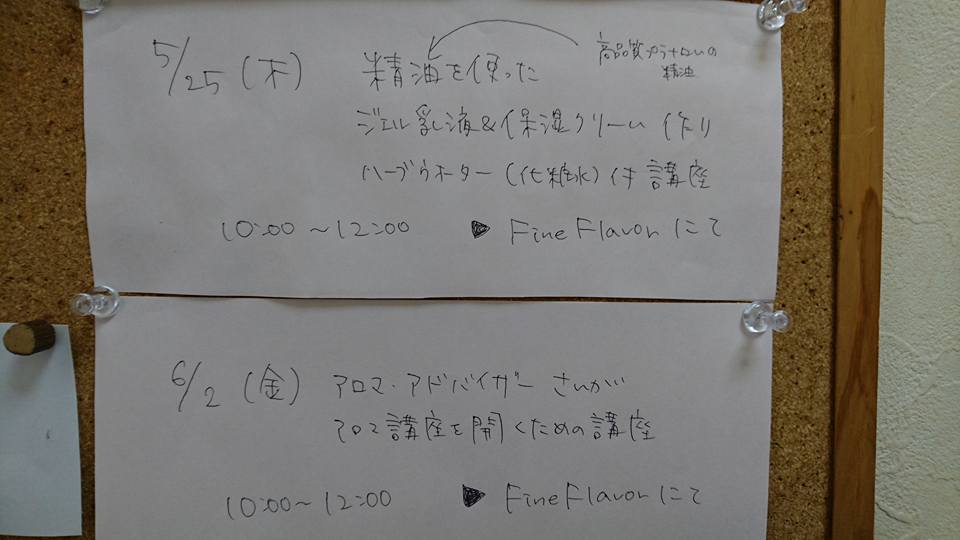 5/25 (木) 精油を使った
高品質カラナロハの
精油
ジェル乳液&保湿クリーム作り
ハーブウォーター(化粧水)付 講座
10:00〜12:00 ▶ Fine Flavorにて
6/2 (金) アロマ・アドバイザーさんが
アロマ講座を開くための講座
10:00〜12:00 ▶ Fine Flavorにて